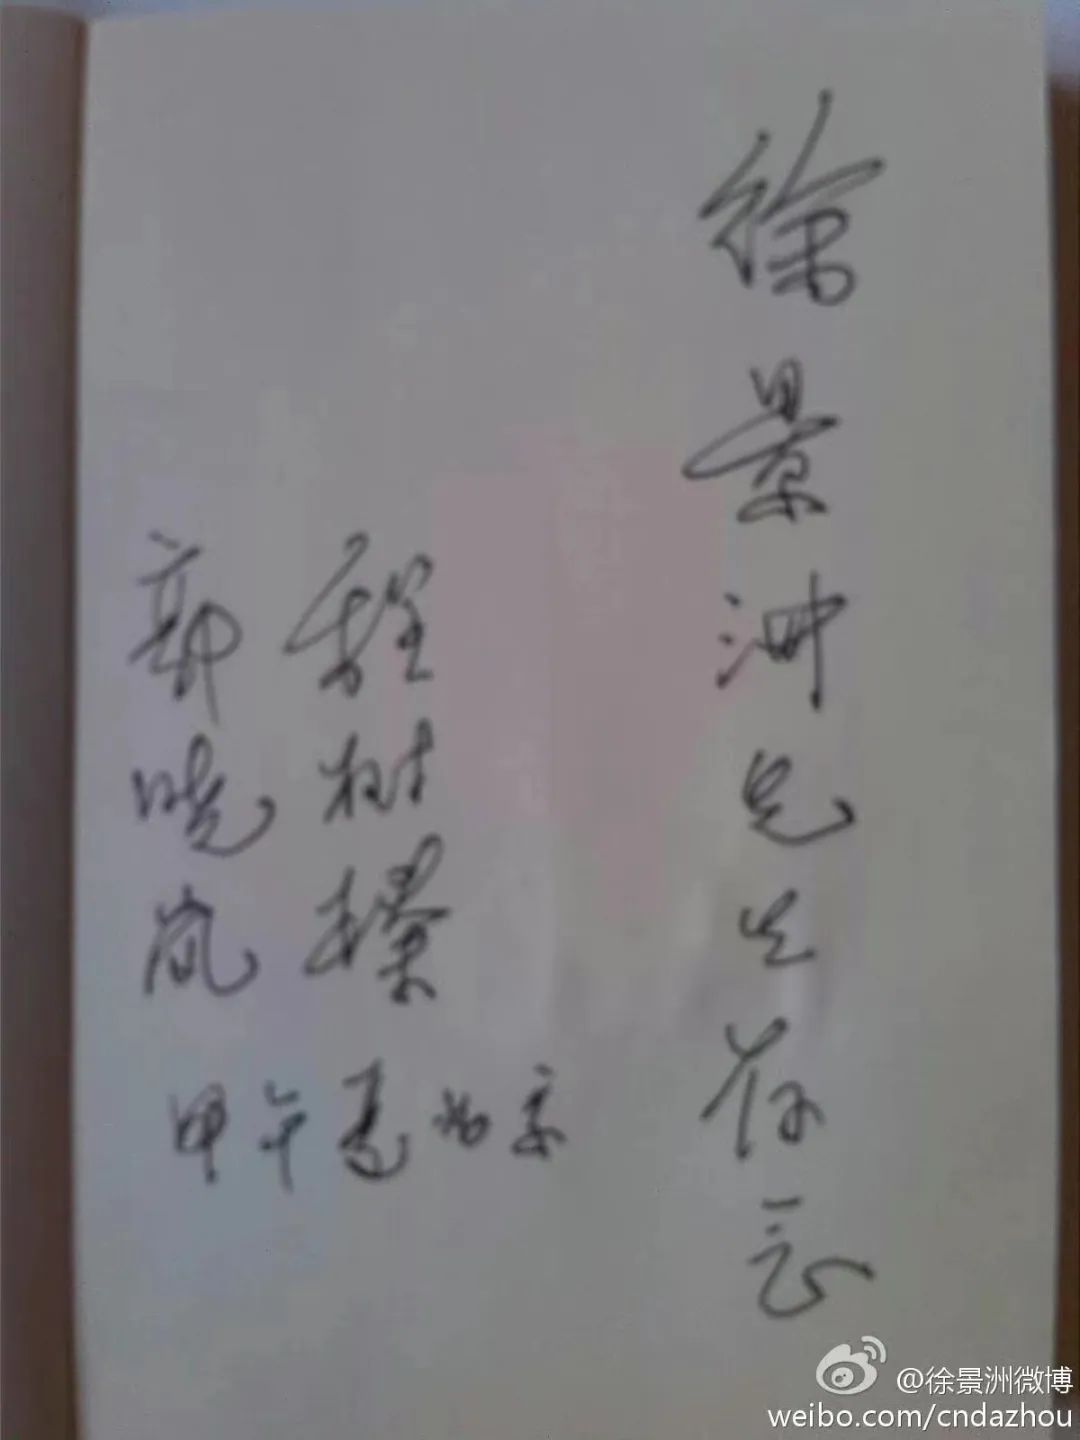 徐景洲先生存念
程树榛
郭晓岚
甲午夏京
@徐景洲微博
weibo.com/cndazhou